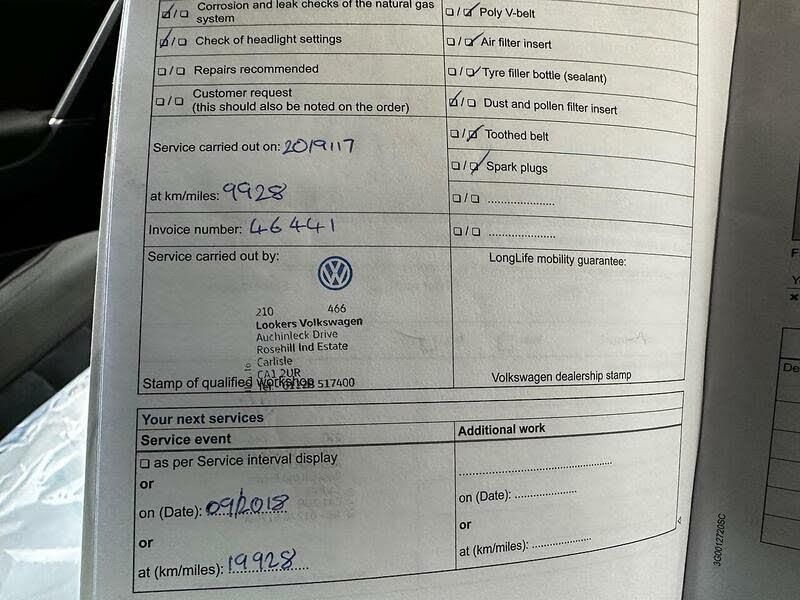 Corrosion and leak checks of the natural gas
system
Check of headlight settings
Repairs recommended
Customer request
(this should also be noted on the order)
Poly V-belt
Air filter insert
Tyre filler bottle (sealant)
Dust and pollen filter insert
Toothed belt
Spark plugs
Service carried out on: 20/9/17
at km/miles: 9928
Invoice number: 46441
Service carried out by:
210 466
Lookers Volkswagen
Auchinleck Drive
Rosehill Ind Estate
Carlisle
CA1 2UR
517400
Stamp of qualified workshop
LongLife mobility guarantee:
Volkswagen dealership stamp
Your next services
Service event
as per Service interval display
or
on (Date): 09/2018
or
at (km/miles): 19928
Additional work
on (Date):
or
at (km/miles):
3G0012720SC